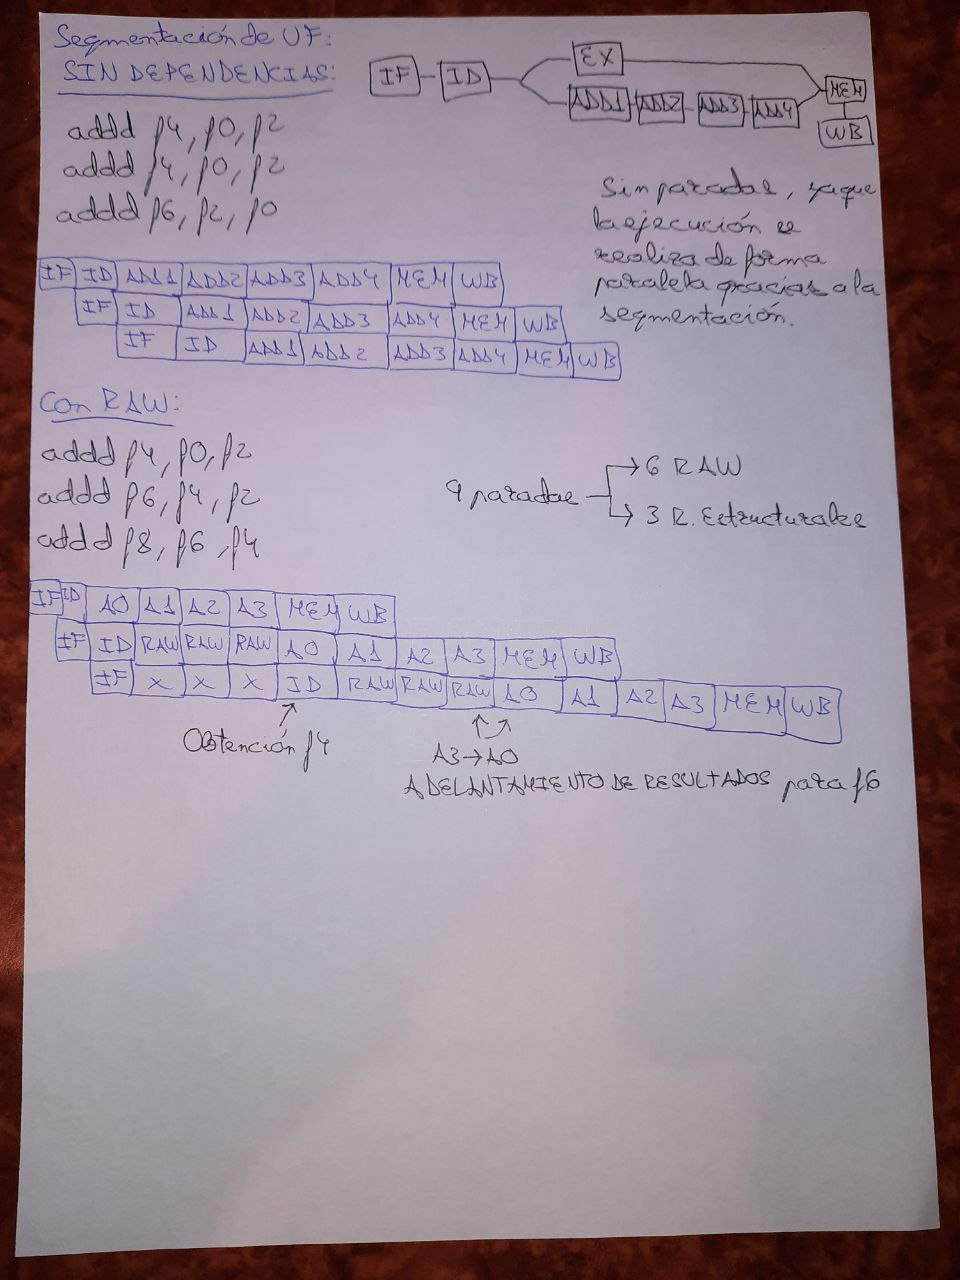 Segmentación de UF:
SIN DEPENDENCIAS:
IF ID EX MEM
ADD1 ADD2 ADD3 ADD4 WB
addd f4, f0, f2
addd f4, f0, f2
addd f6, f2, f0
Sin paradas, ya que
la ejecución se
realiza de forma
paralela gracias a la
segmentación.
IF ID ADD1 ADD2 ADD3 ADD4 MEM WB
IF ID ADD1 ADD2 ADD3 ADD4 MEM WB
IF ID ADD1 ADD2 ADD3 ADD4 MEM WB
Con RAW:
addd f4, f0, f2
addd f6, f4, f2
addd f8, f6, f4
9 paradas → 6 RAW
→ 3 R. Estructurales
IF ID A0 A1 A2 A3 MEM WB
IF ID RAW RAW RAW A0 A1 A2 A3 MEM WB
IF X X X ID RAW RAW RAW A0 A1 A2 A3 MEM WB
Obtención f4
A3→A0
ADELANTAMIENTO DE RESULTADOS para f6